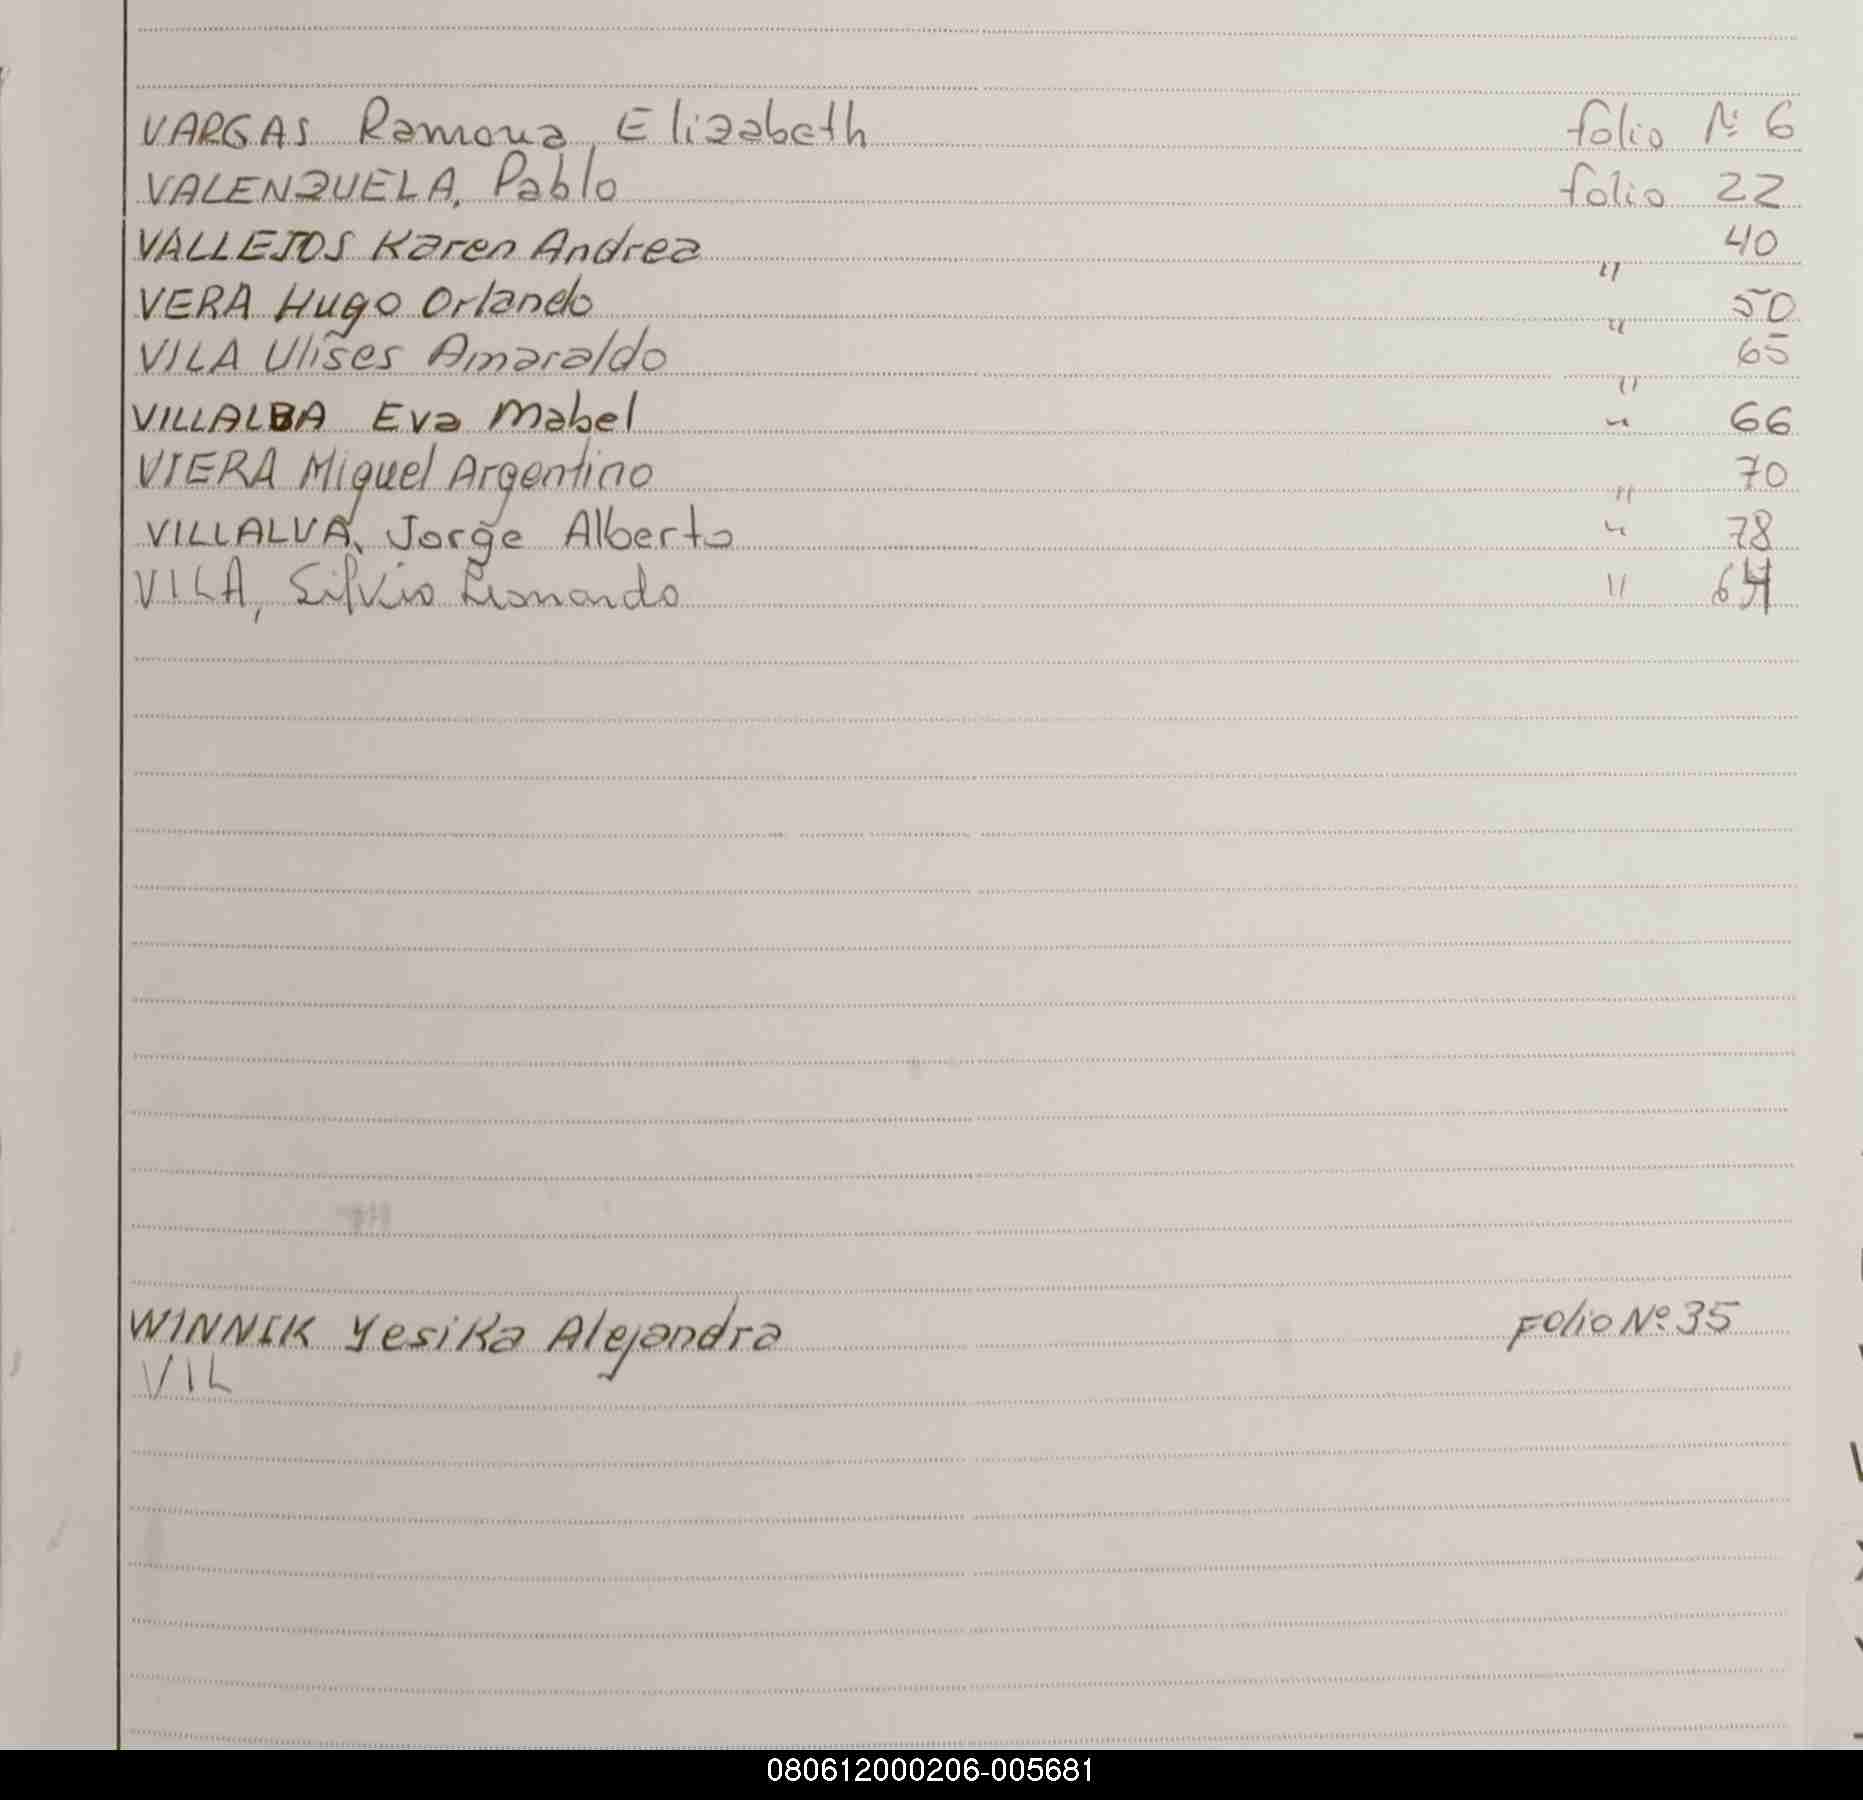 VARGAS Ramona Elizabeth folio Nº 6
VALENZUELA, Pablo folio 22
VALLEJOS Karen Andrea " 40
VERA Hugo Orlando " 50
VILA Ulises Amaraldo " 65
VILLALBA Eva Mabel " 66
VIERA Miguel Argentino " 70
VILLALVA, Jorge Alberto " 78
VILA, Silvio Leonardo " 64
WINNIK Yesika Alejandra Folio Nº 35
VIL
080612000206-005681